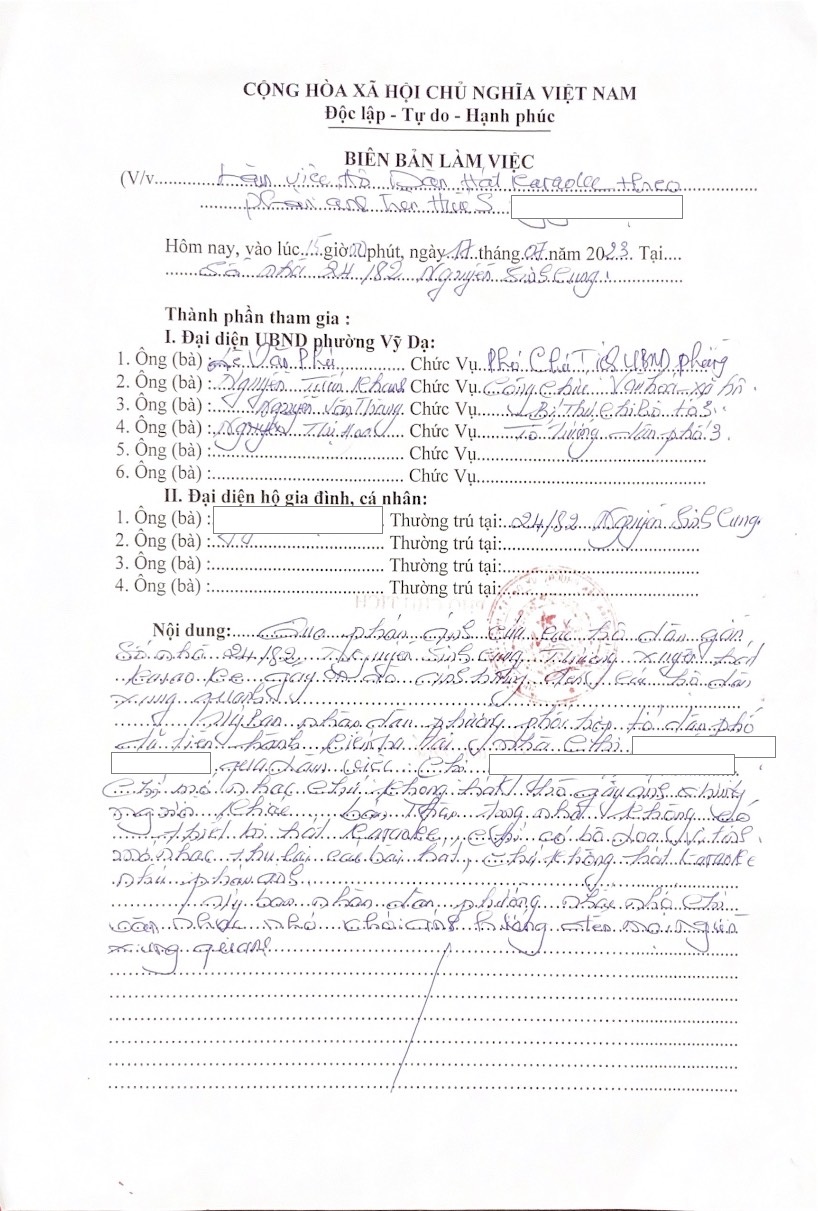 CỘNG HÒA XÃ HỘI CHỦ NGHĨA VIỆT NAM
Độc lập - Tự do - Hạnh phúc
BIÊN BẢN LÀM VIỆC
(V/v Làm việc Dàn Hát Karaoke theo
phản ánh trên
Hôm nay, vào lúc 15 giờ 00 phút, ngày 17 tháng 07 năm 2023. Tại
Số nhà 24/82 Nguyễn Sinh Cung.
Thành phần tham gia :
I. Đại diện UBND phường Vỹ Dạ:
1. Ông (bà) : Lê Văn Phú Chức Vụ Phó Chủ Tịch UBND phường
2. Ông (bà) : Nguyễn Tuấn Chức Vụ Công chức Văn hóa xã hội.
3. Ông (bà) : Nguyễn Văn Chức Vụ Bí Thư Chi bộ tổ 3.
4. Ông (bà) : Nguyễn Thị Chức Vụ Tổ trưởng dân phố 3.
5. Ông (bà) : Chức Vụ
6. Ông (bà) : Chức Vụ
II. Đại diện hộ gia đình, cá nhân:
1. Ông (bà) : Thường trú tại: 24/82 Nguyễn Sinh Cung.
2. Ông (bà) : Thường trú tại:
3. Ông (bà) : Thường trú tại:
4. Ông (bà) : Thường trú tại:
Nội dung: Qua phản ánh của các hộ dân gần
Số nhà 24/82 Nguyễn Sinh Cung Thường xuyên hát
Karaoke gây ồn ào ảnh hưởng đến các hộ dân
xung quanh.
Ủy Ban nhân dân phường phối hợp tổ dân phố
đã tiến hành kiểm tra tại nhà chị
, qua làm việc. Chị
Chỉ mở nhạc chứ không hát
người khác, trong nhà không có
Thiết bị hát Karaoke, chị có bộ loa
mở nhạc thu lại các bài hát, chứ không hát Karaoke
như phản ánh
Ủy ban nhân dân phường nhắc nhở chị
nhạc nhỏ ảnh hưởng đến mọi người
xung quanh